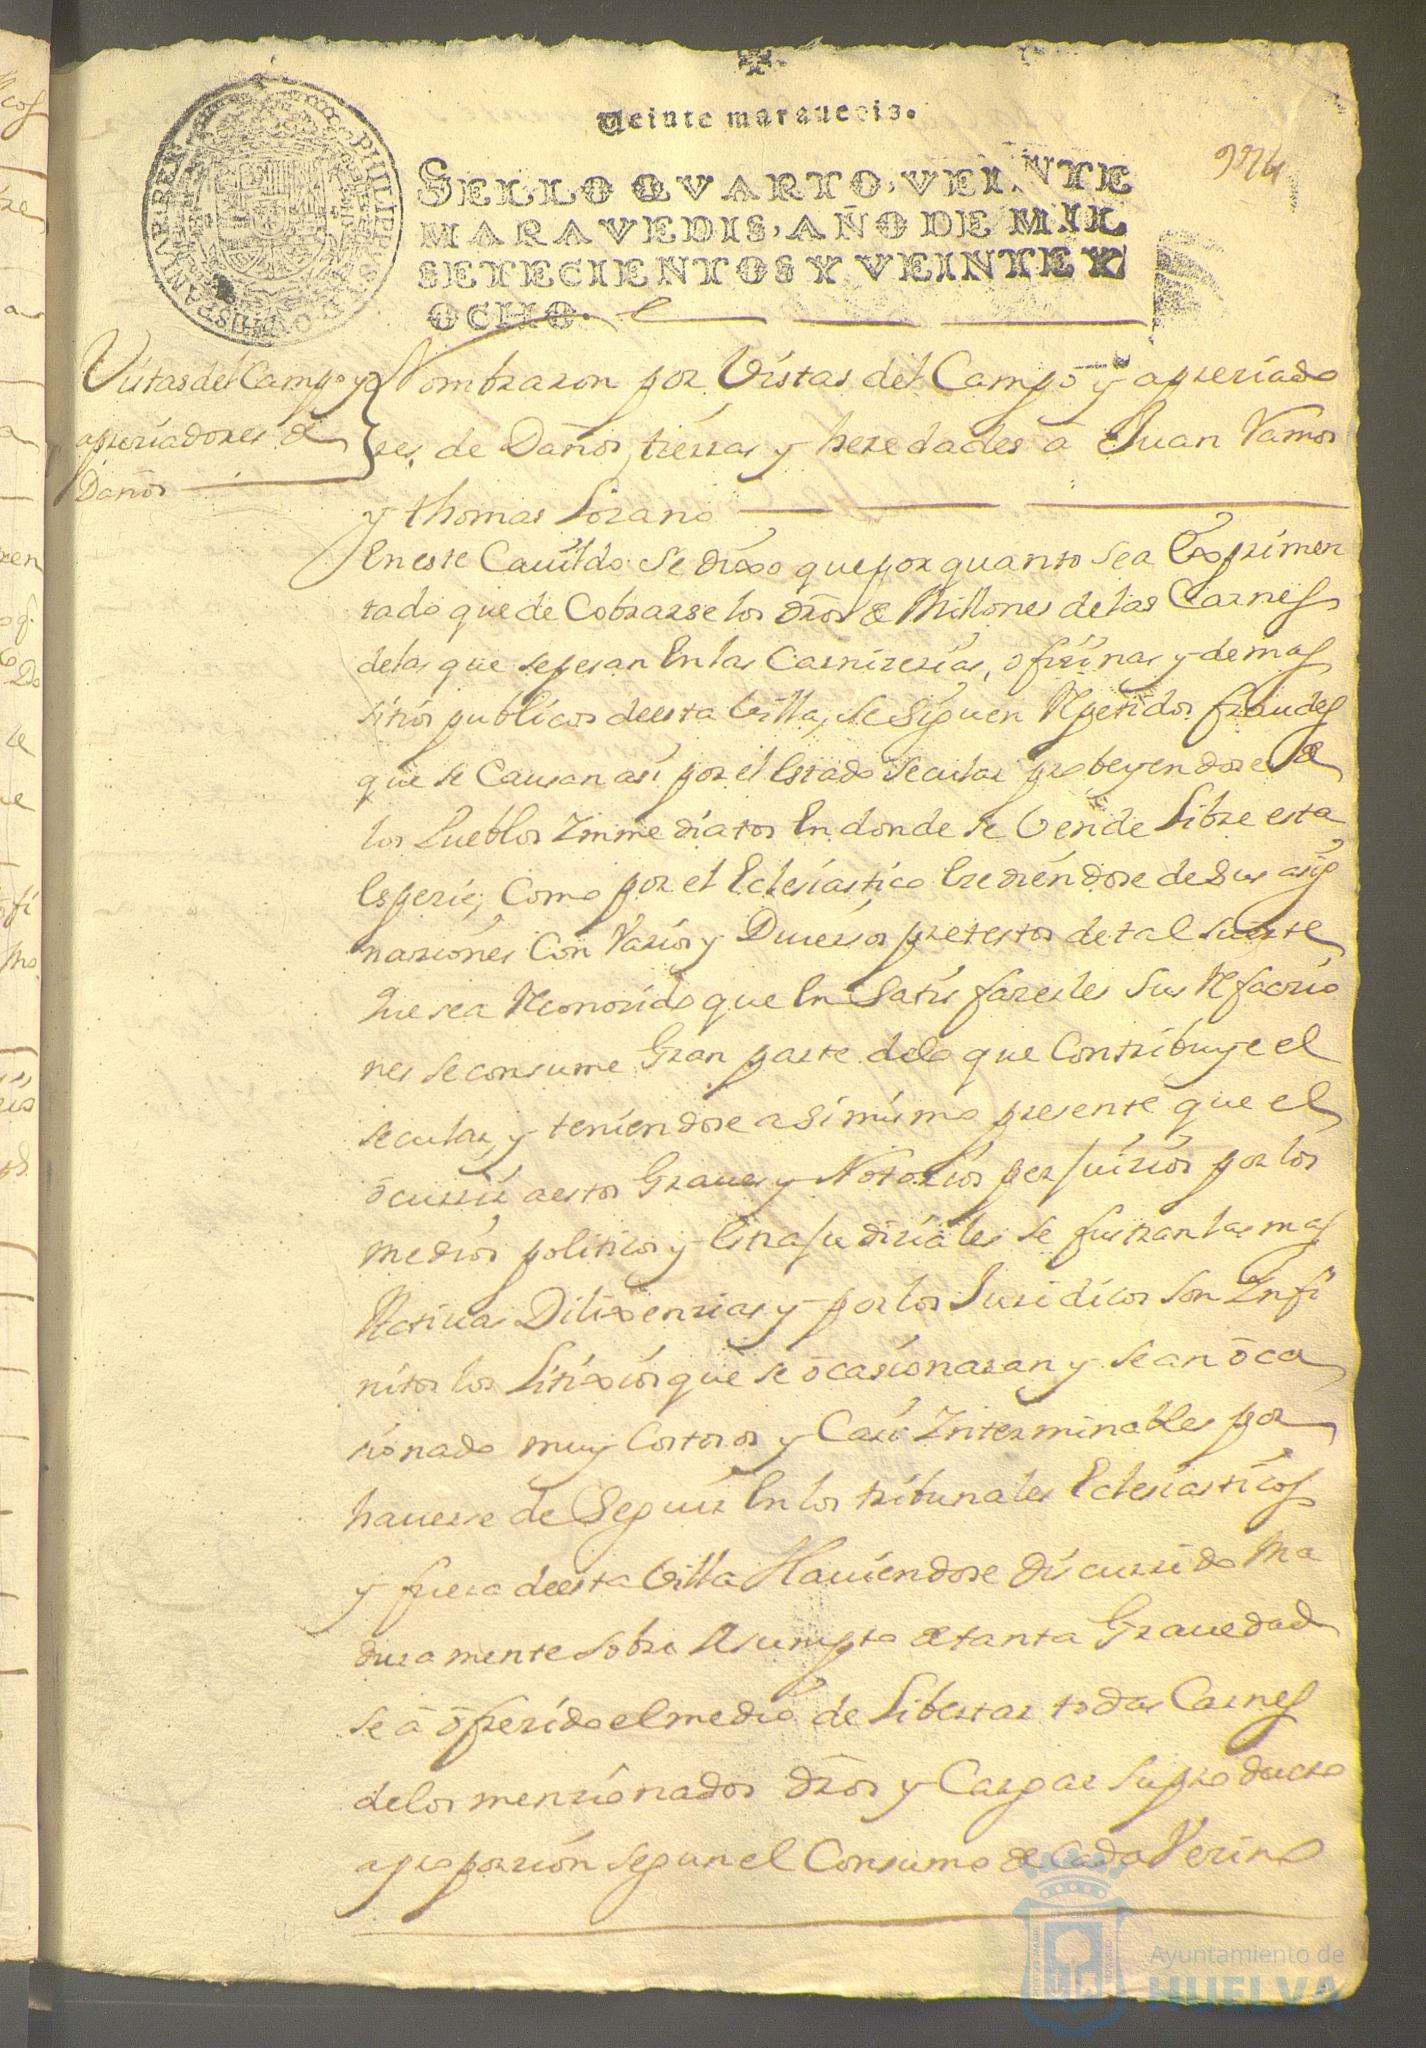 Veinte marauedis.
SELLO QVARTO, VEINTE
MARAVEDIS, AÑO DE MIL
SETECIENTOS Y VEINTE Y
OCHO.
PHILIPPUS V D G HISPANIAR REX
Vistas del Campo y
apreciadores de
Daños
Nombraron por Vistas del Campo y apreciado
res de Daños, tierras y heredades a Juan Ramos
y thomas Lozano
En este Cauildo se dixo que por quanto se a Exprimen
tado que de Cobrarse los dros de Millones de las Carnes
de las que se pesan En las Carnizerias, ofizinas y demas
sitios publicos de esta Villa, se siguen Repetidos fraudes
que se Causan asi por el Estado secular probeyendose de
los Pueblos Inmediatos En donde se Vende Libre esta
Especie, Como por el Eclesiastico Excediendose de Sus asig
naziones Con Varios y Diuersos pretestos de tal suerte
que se a Reconozido que En Satisfazerles Sus Refaczio
nes se consume Gran parte de lo que Contribuye el
secular, y teniendose asimismo presente que el
ocurrir a estos Graues y Notorios perjuizios por los
medios politicos y Extrajudiziales se frustran las mas
Actiuas Dilixenzias y por los Juridicos son Infi
nitos los Litixios que se ocasionaran y se an oca
sionado muy Costosos y Casi Interminables por
hauerse de Seguir En los tribunales Eclesiasticos
y fuera de esta Villa Hauiendose discurrido Ma
duramente sobre Asumpto de tanta Grauedad
se a ofrezido el medio de Libertar todas Carnes
de los menzionados dros y Cargar su producto
a proporzion segun el Consumo de Cada Vezino
Ayuntamiento de
HUELVA